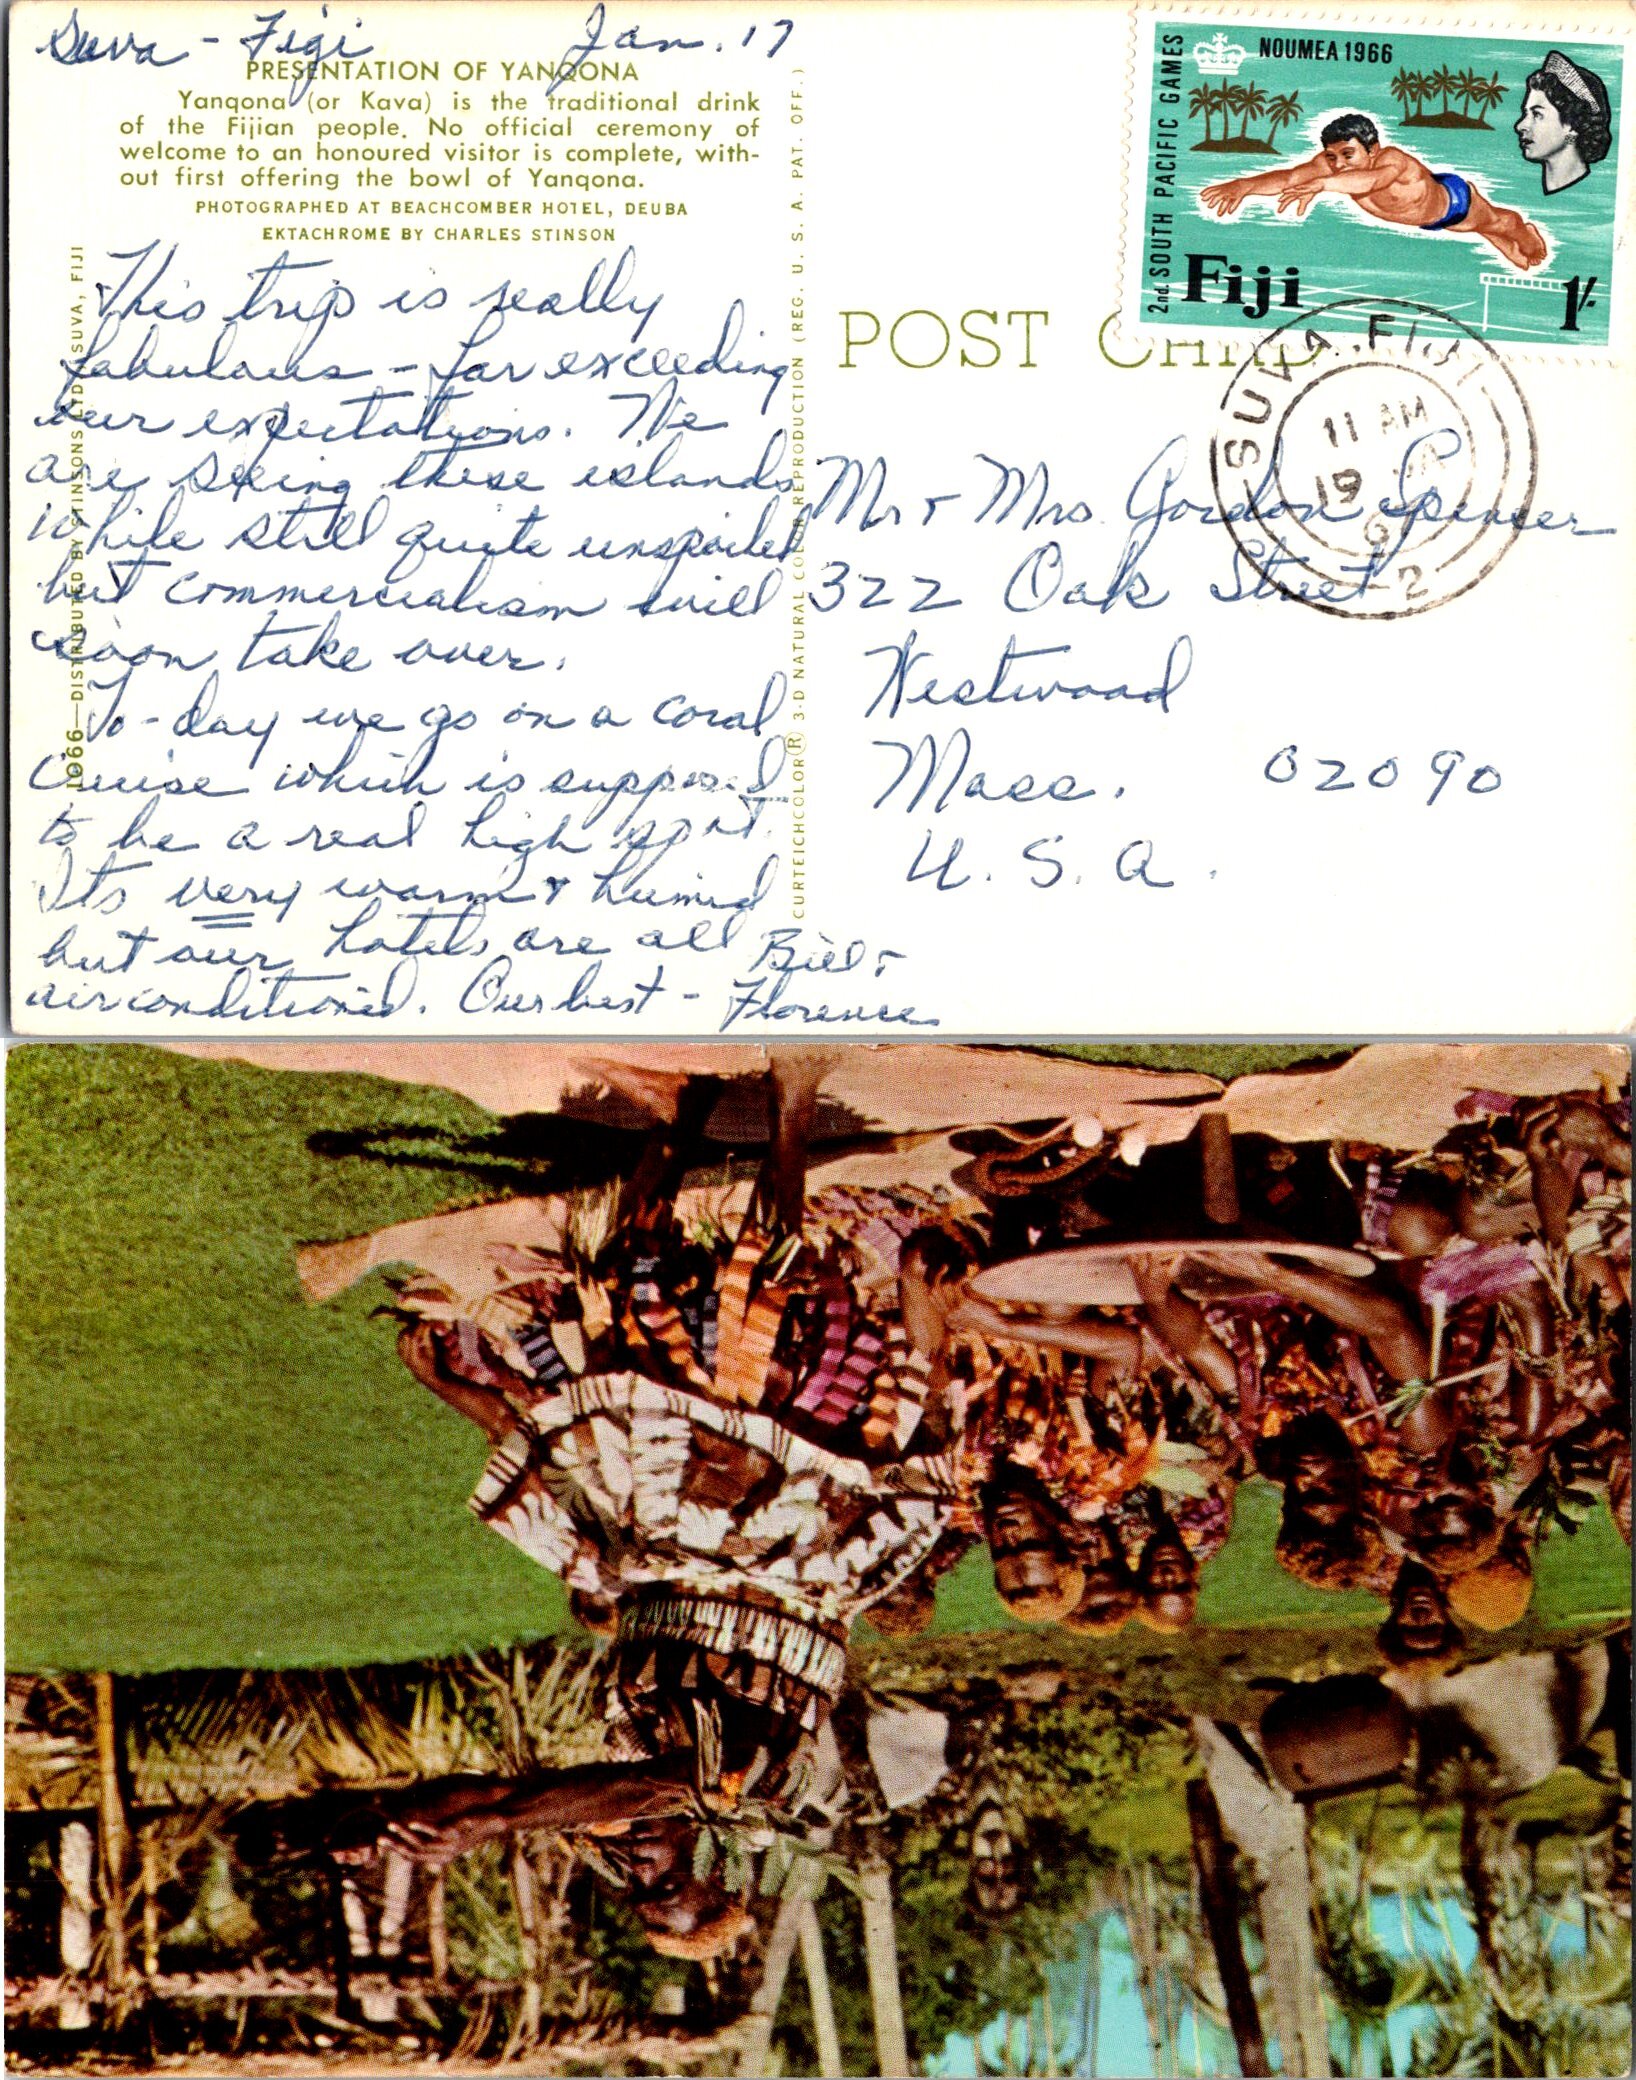 Suva - Figi Jan. 17
PRESENTATION OF YANQONA
Yanqona (or Kava) is the traditional drink
of the Fijian people. No official ceremony of
welcome to an honoured visitor is complete, with-
out first offering the bowl of Yanqona.
PHOTOGRAPHED AT BEACHCOMBER HOTEL, DEUBA
EKTACHROME BY CHARLES STINSON
This trip is really
fabulous - far exceeding
our expectations. We
are seeing these islands
while still quite unspoiled
but commercialism will
soon take over.
To-day we go on a coral
cruise which is supposed
to be a real high spot.
Its very warm & humid
but our hotels are all
airconditioned. Our best -
Bill &
Florence
1966—DISTRIBUTED BY STINSONS LTD., SUVA, FIJI
CURTEICHCOLOR® 3-D NATURAL COLOR REPRODUCTION (REG. U. S. A. PAT. OFF.)
POST CARD
NOUMEA 1966
2nd. SOUTH PACIFIC GAMES
Fiji
1/-
SUVA FIJI
11 AM
19 JA
2
Mr & Mrs. Gordon Spencer
322 Oak Street
Westwood
Mass. 02090
U. S. A.